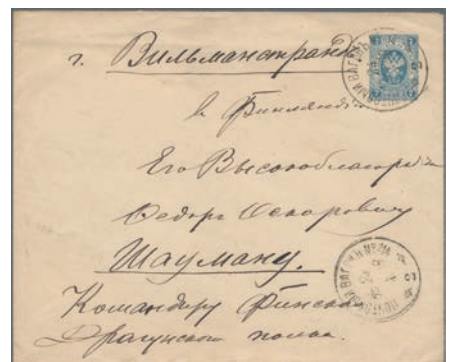 г. Вильманстрандъ
въ Финляндiи
Его Высокоблагородiю
Федоръ Оскаровичу
Шауману.
Командиру Финскаго
Драгунскаго полка.
ПОЧТОВЫЙ ВАГОНЪ
ПОЧТОВЫЙ ВАГОНЪ